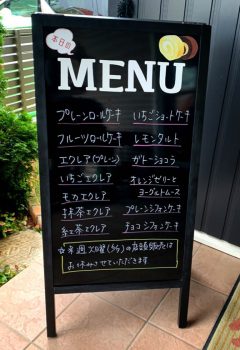 本日の
MENU
プレーンロールケーキ
フルーツロールケーキ
エクレア(プレーン)
いちごエクレア
モカエクレア
抹茶エクレア
紅茶エクレア
いちごショートケーキ
レモンタルト
ガトーショコラ
オレンジゼリーと
ヨーグルトムース
プレーンシフォンケーキ
チョコシフォンケーキ
来週火曜(5/5)の店頭販売は
お休みさせていただきます